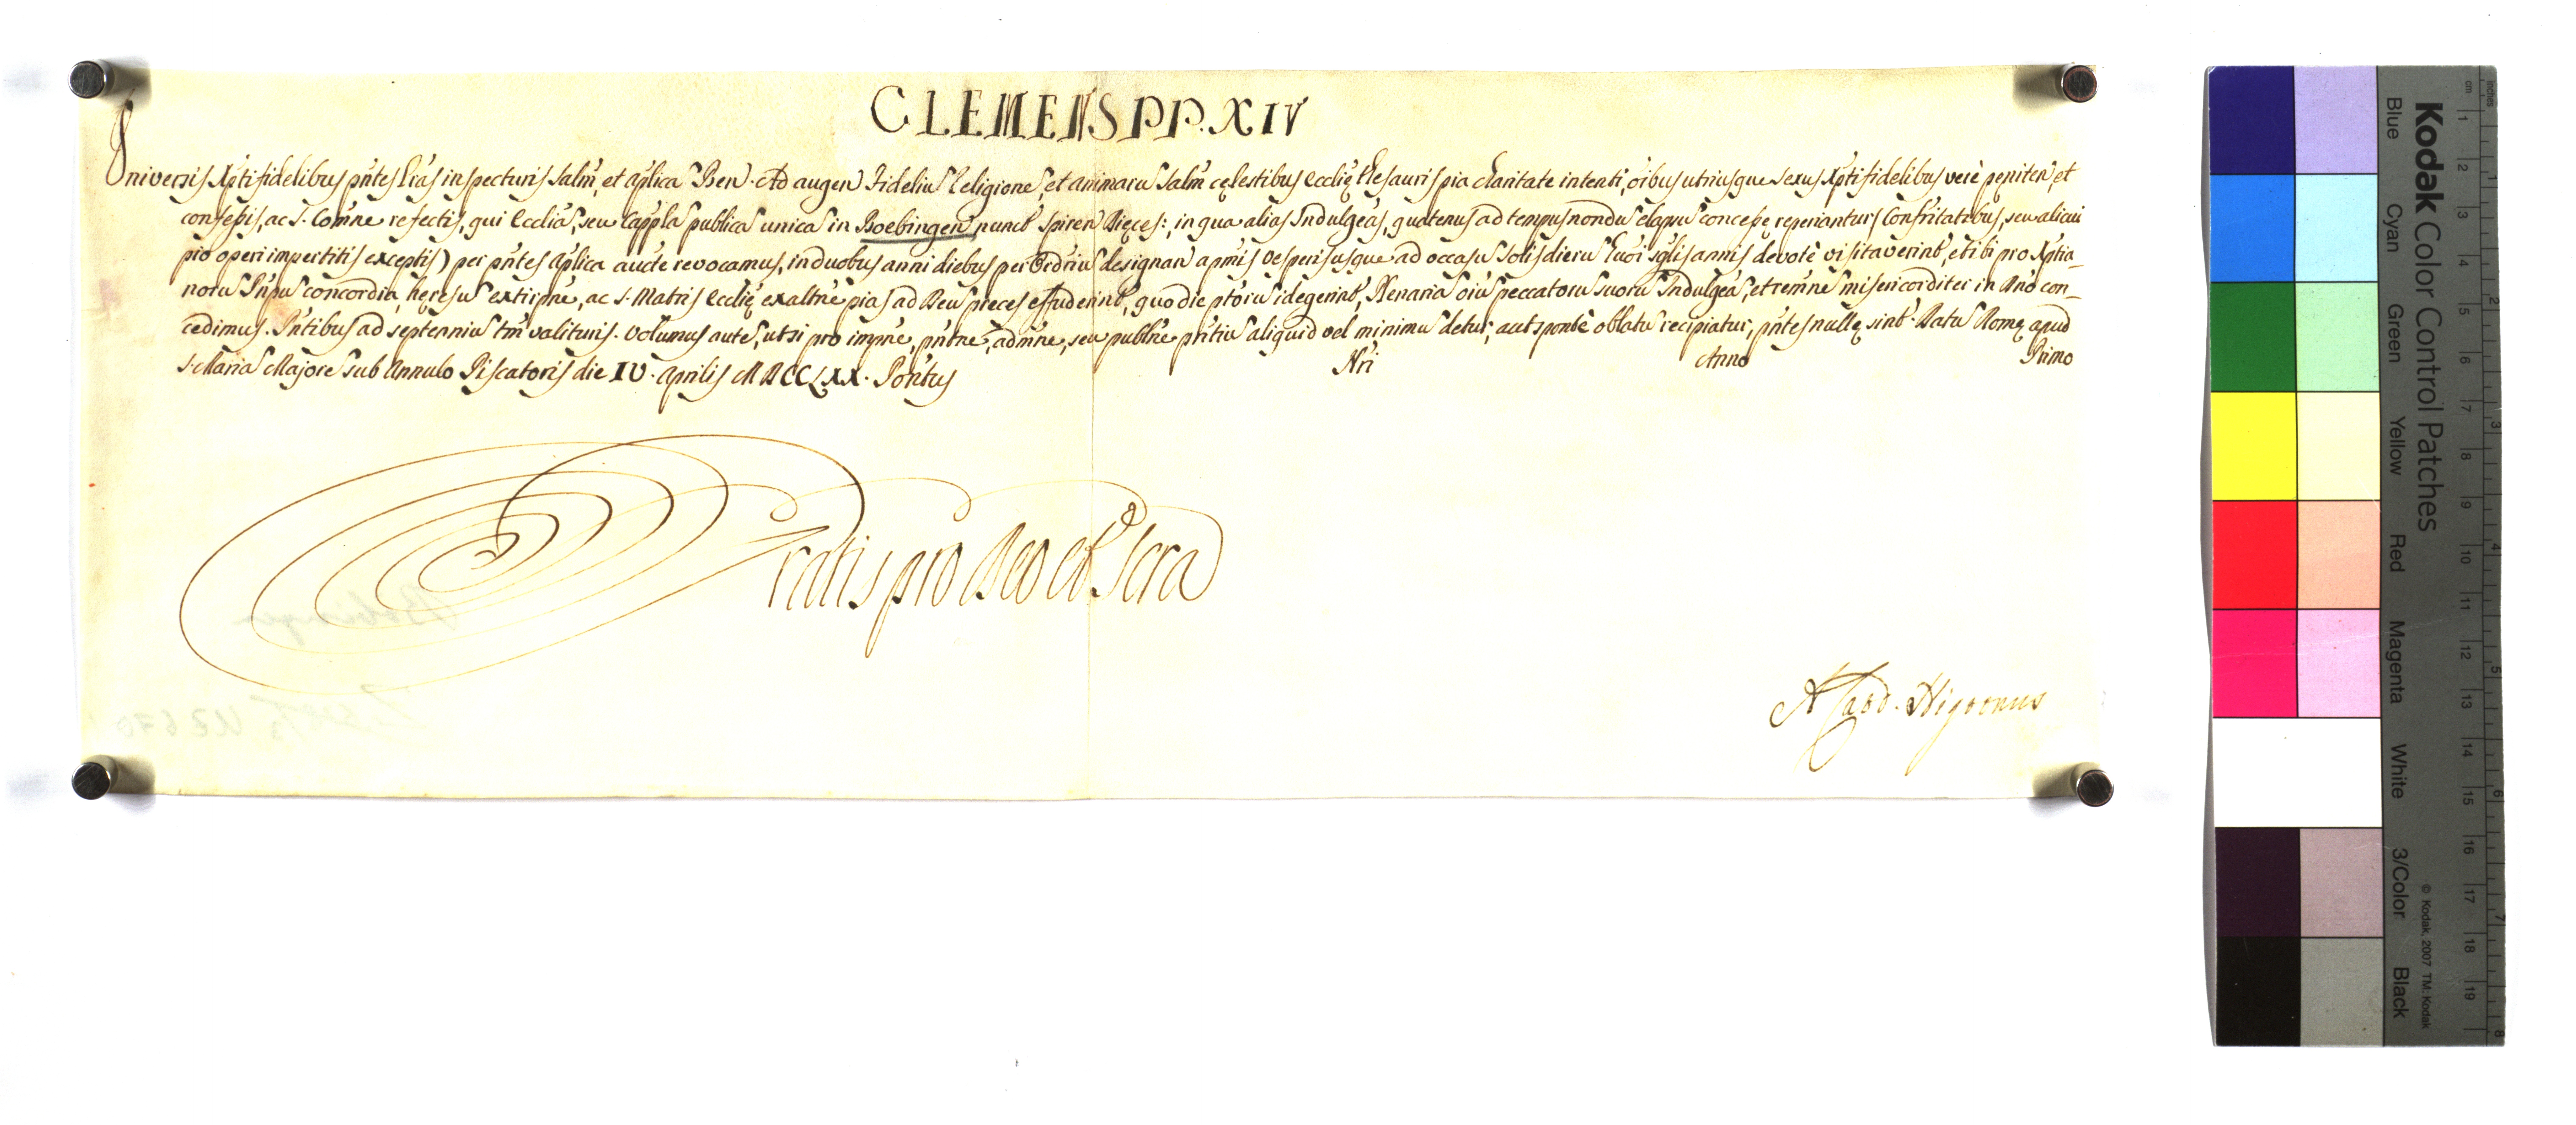 CLEMENS PP. XIV
Universis Xpti fidelibus pn̄tes Lr̄as inspecturis Salm̄, et aplica Ben. Ad augen Fideliū Religionē, et animarū Salm̄ cęlestibus Ecclię thesauris pia charitate intenti, oībus utriusque sexus Xpti fidelibus verè pęniten̄, et
confessis, ac S. Comn̄e refectis, qui Eccliā, seu Capplā publicā unicā in Boebingen nuncup̄ Spiren Dięces:, in qua alias Indulgēas, quatenus ad tempus nondū elapsū concessę reperiantur (Confr̄itatibus, seu alicui
pio operi impertitis exceptis) per pn̄tes aplica aucte revocamus, in duobus anni diebus per Ordr̄iū designan a prīis vesperis usque ad occasū Solis dierū hūoī sglis annis devotè visitaverint, et ibi pro Xptia-
norū Pn̄pū concordia, hęresū extirpn̄e, ac S. Matris Ecclię exaltn̄e pias ad Deū preces effuderint, quo die pt̄orū id egerint, Plenariā oīū peccatorū suorū Indulgēā, et remn̄e misericorditer in Dn̄o con-
cedimus. Pn̄tibus ad septenniū tm̄ valituris. Volumus autē, ut si pro impn̄e, pn̄tn̄e, admn̄e, seu publn̄e pn̄tiū aliquid vel minimū detur, aut sponte oblatū recipiatur, pn̄tes nullę sint. Datū Romę apud
S. Mariā Majorē sub Annulo Piscatoris die IV. Aprilis MDCCLXX. Pontūs Nr̄i Anno Primo
Gratis pro Deo et Scra
A Card. Nigronus
Kodak Color Control Patches
Blue Cyan Green Yellow Red Magenta White 3/Color Black
© Kodak, 2007 TM: Kodak
cm 1 2 3 4 5 6 7 8 9 10 11 12 13 14 15 16 17 18 19
inches 1 2 3 4 5 6 7 8